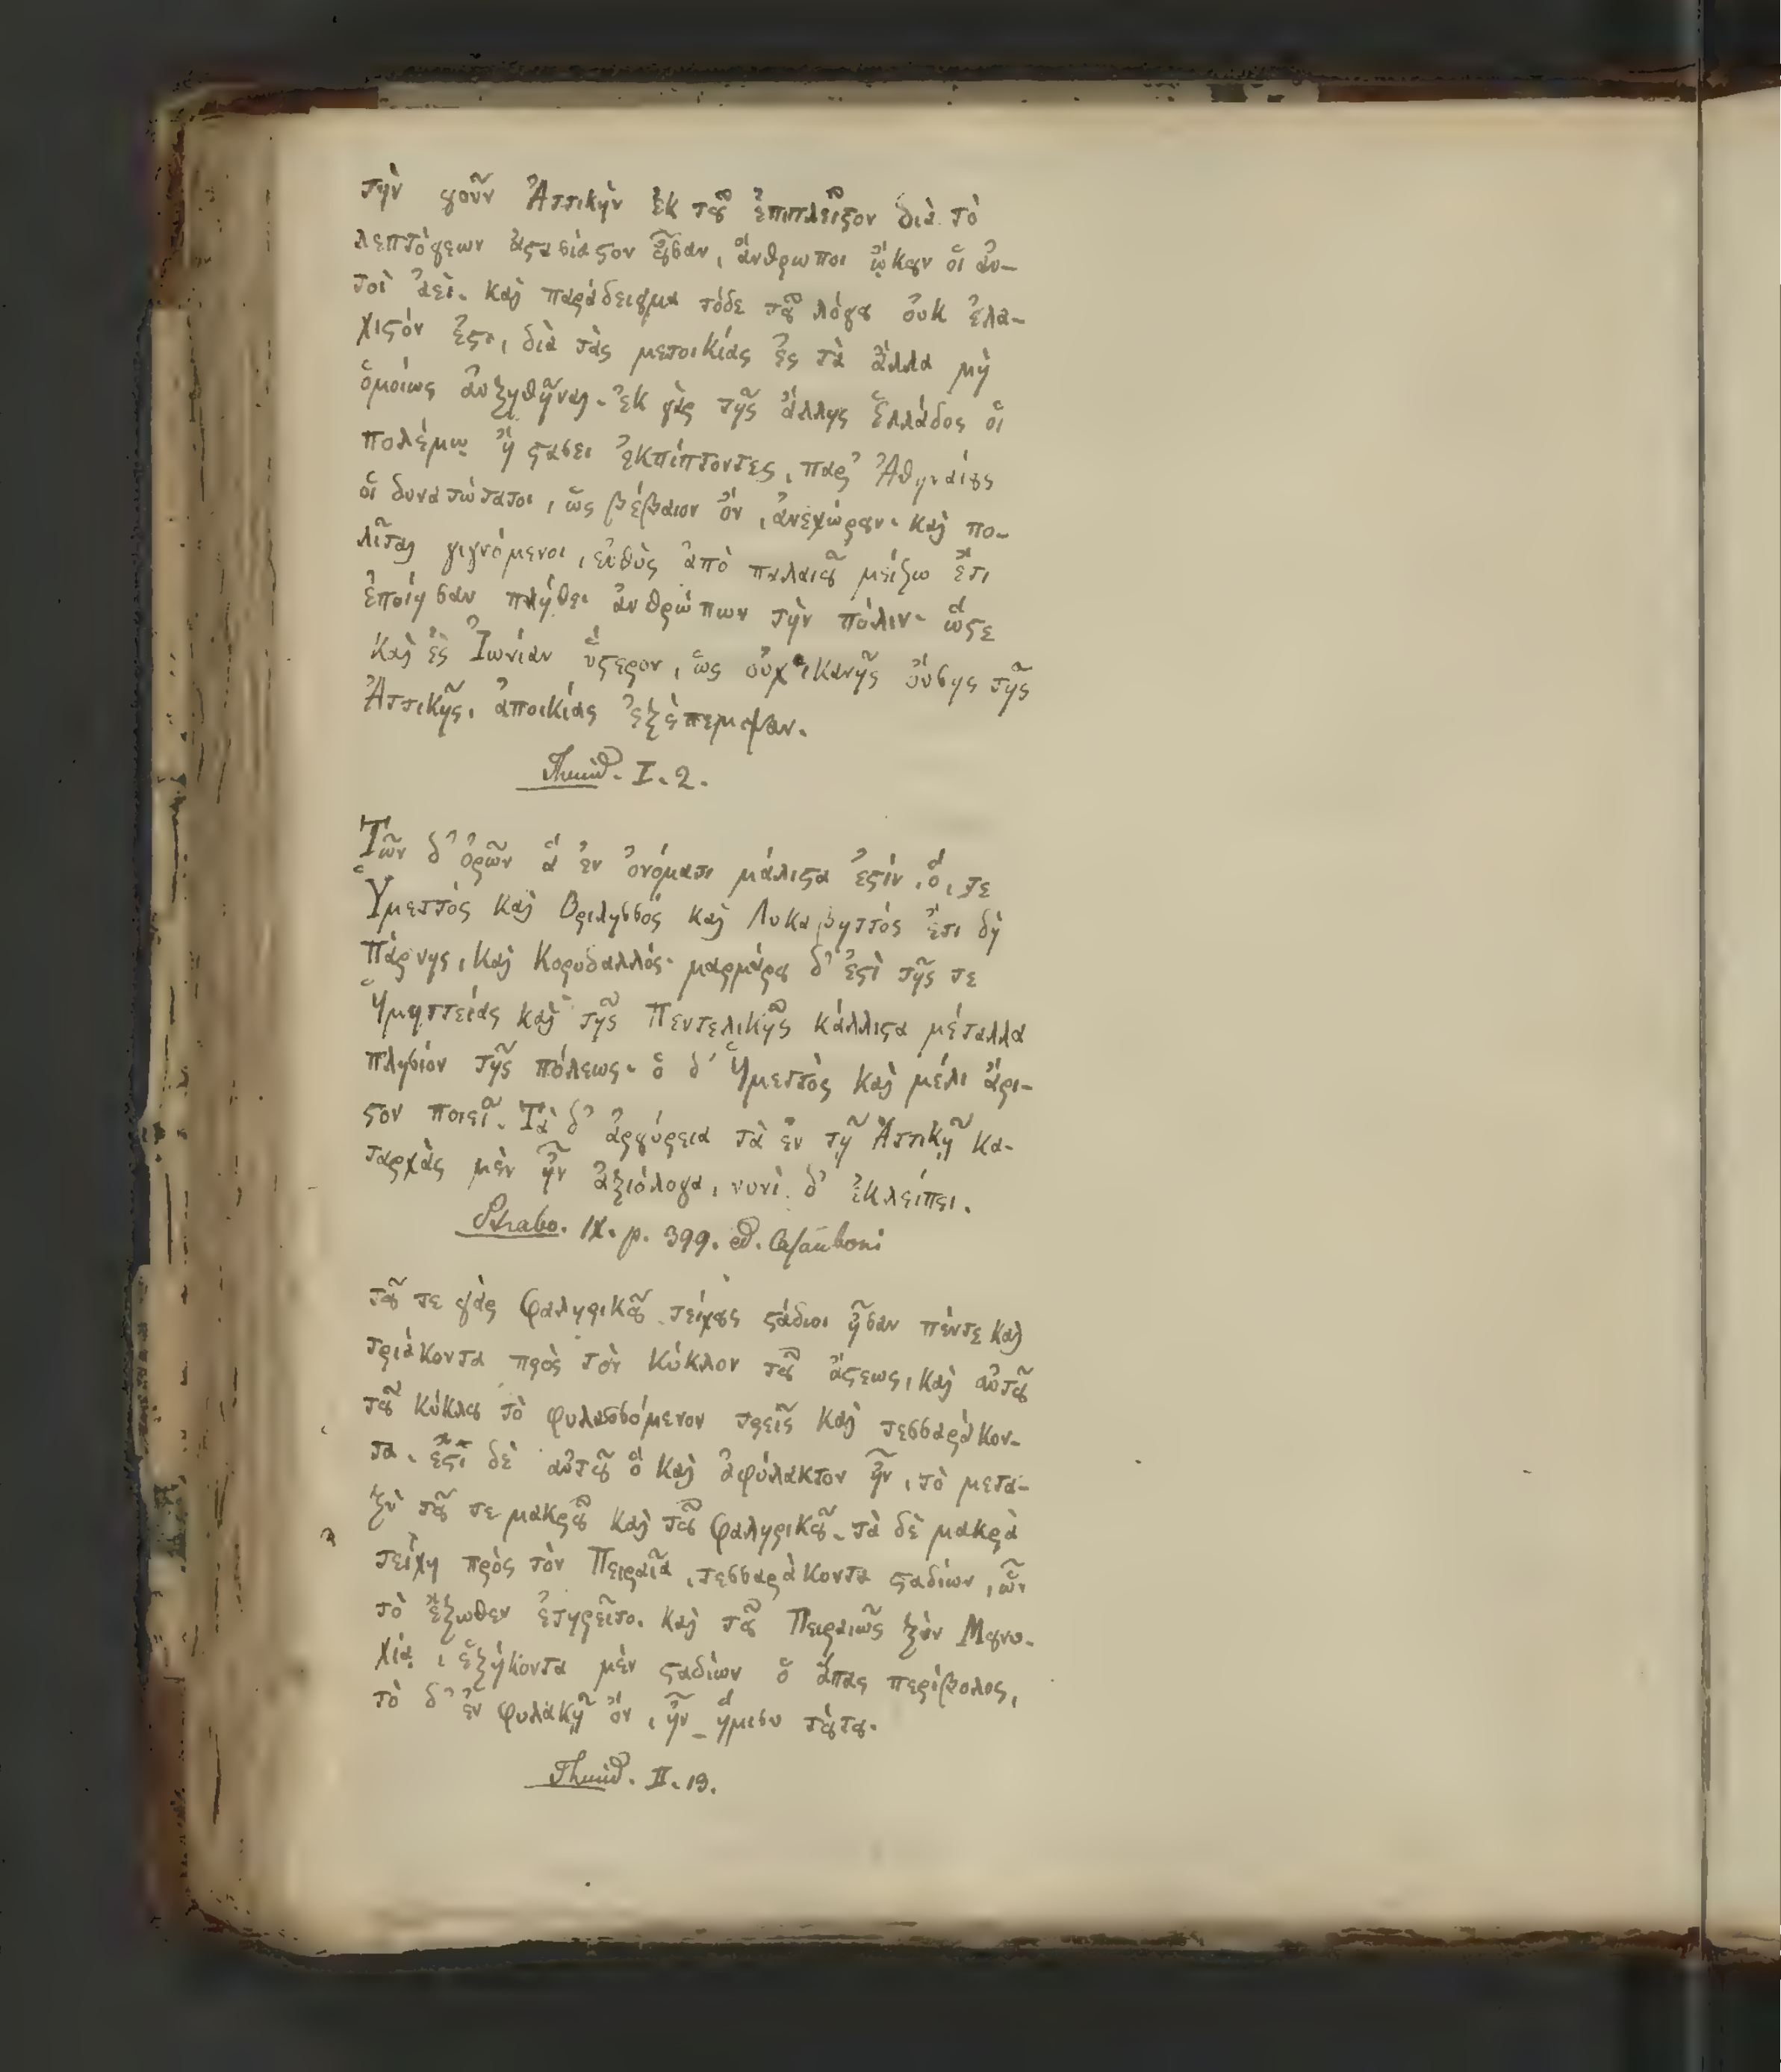 τὴν γοῦν Ἀττικὴν ἐκ τȣ͂ ἐπιπλεῖϛον διὰ τὸ
λεπτόγεων ἀϛασίαϛον ȣ̓͂σαν, ἄνθρωποι ᾤκȣν οἱ αὐ-
τοὶ ἀεὶ. καὶ παράδειγμα τόδε τȣ͂ λόγȣ οὐκ ἐλά-
χιϛόν ἐϛι, διὰ τὰς μετοικίας ἐς τὰ ἄλλα μὴ
ὁμοίως αὐξηθῆναι. ἐκ γὰρ τῆς ἄλλης Ἑλλάδος οἱ
πολέμῳ ἢ ϛάσει ἐκπίπτοντες, παρ' Ἀθηναίȣς
οἱ δυνατώτατοι, ὡς βέβαιον ὂν, ἀνεχώρȣν. καὶ πο-
λῖται γιγνόμενοι, εὐθὺς ἀπὸ παλαιȣ͂ μείζω ἔτι
ἐποίησαν πλήθει ἀνθρώπων τὴν πόλιν. ὥϛε
καὶ ἐς Ἰωνίαν ὕϛερον, ὡς οὐχ ἱκανῆς ȣ̓́σης τῆς
Ἀττικῆς, ἀποικίας ἐξέπεμψαν.
Thucid. I. 2.
Τῶν δ' ὀρῶν ἃ ἐν ὀνόματι μάλιϛα ἐϛίν, ὅ, τε
Ὑμεττὸς καὶ Βριλησσὸς καὶ Λυκαβηττὸς ἔτι δὴ
Πάρνης, καὶ Κορυδαλλός. μαρμάρȣ δ' ἐϛὶ τῆς τε
Ὑμηττείας καὶ τῆς Πεντελικῆς κάλλιϛα μέταλλα
πλησίον τῆς πόλεως. ὁ δ' Ὑμεττὸς καὶ μέλι ἄρι-
ϛον ποιεῖ. Τὰ δ' ἀργύρεια τὰ ἐν τῇ Ἀττικῇ κα-
ταρχὰς μὲν ἦν ἀξιόλογα, νυνὶ δ' ἐκλείπει.
Strabo. IX. p. 399. ed. Casauboni
τȣ͂ τε γὰρ Φαληρικȣ͂ τείχȣς ϛάδιοι ἦσαν πέντε καὶ
τριάκοντα πρὸς τὸν κύκλον τȣ͂ ἄϛεως, καὶ αὐτȣ͂
τȣ͂ κύκλȣ τὸ φυλασσόμενον τρεῖς καὶ τεσσαράκον-
τα. ἔϛι δὲ αὐτȣ͂ ὃ καὶ ἀφύλακτον ἦν, τὸ μετα-
ξὺ τȣ͂ τε μακρȣ͂ καὶ τȣ͂ Φαληρικȣ͂. τὰ δὲ μακρὰ
τείχη πρὸς τὸν Πειραῖα, τεσσαράκοντα ϛαδίων, ὧν
τὸ ἔξωθεν ἐτηρεῖτο. καὶ τȣ͂ Πειραιῶς ξὺν Μȣνυ-
χίᾳ, ἑξήκοντα μὲν ϛαδίων ὁ ἅπας περίβολος,
τὸ δ' ἐν φυλακῇ ὂν, ἦν ἥμισυ τȣ́τȣ.
Thucid. II. 13.